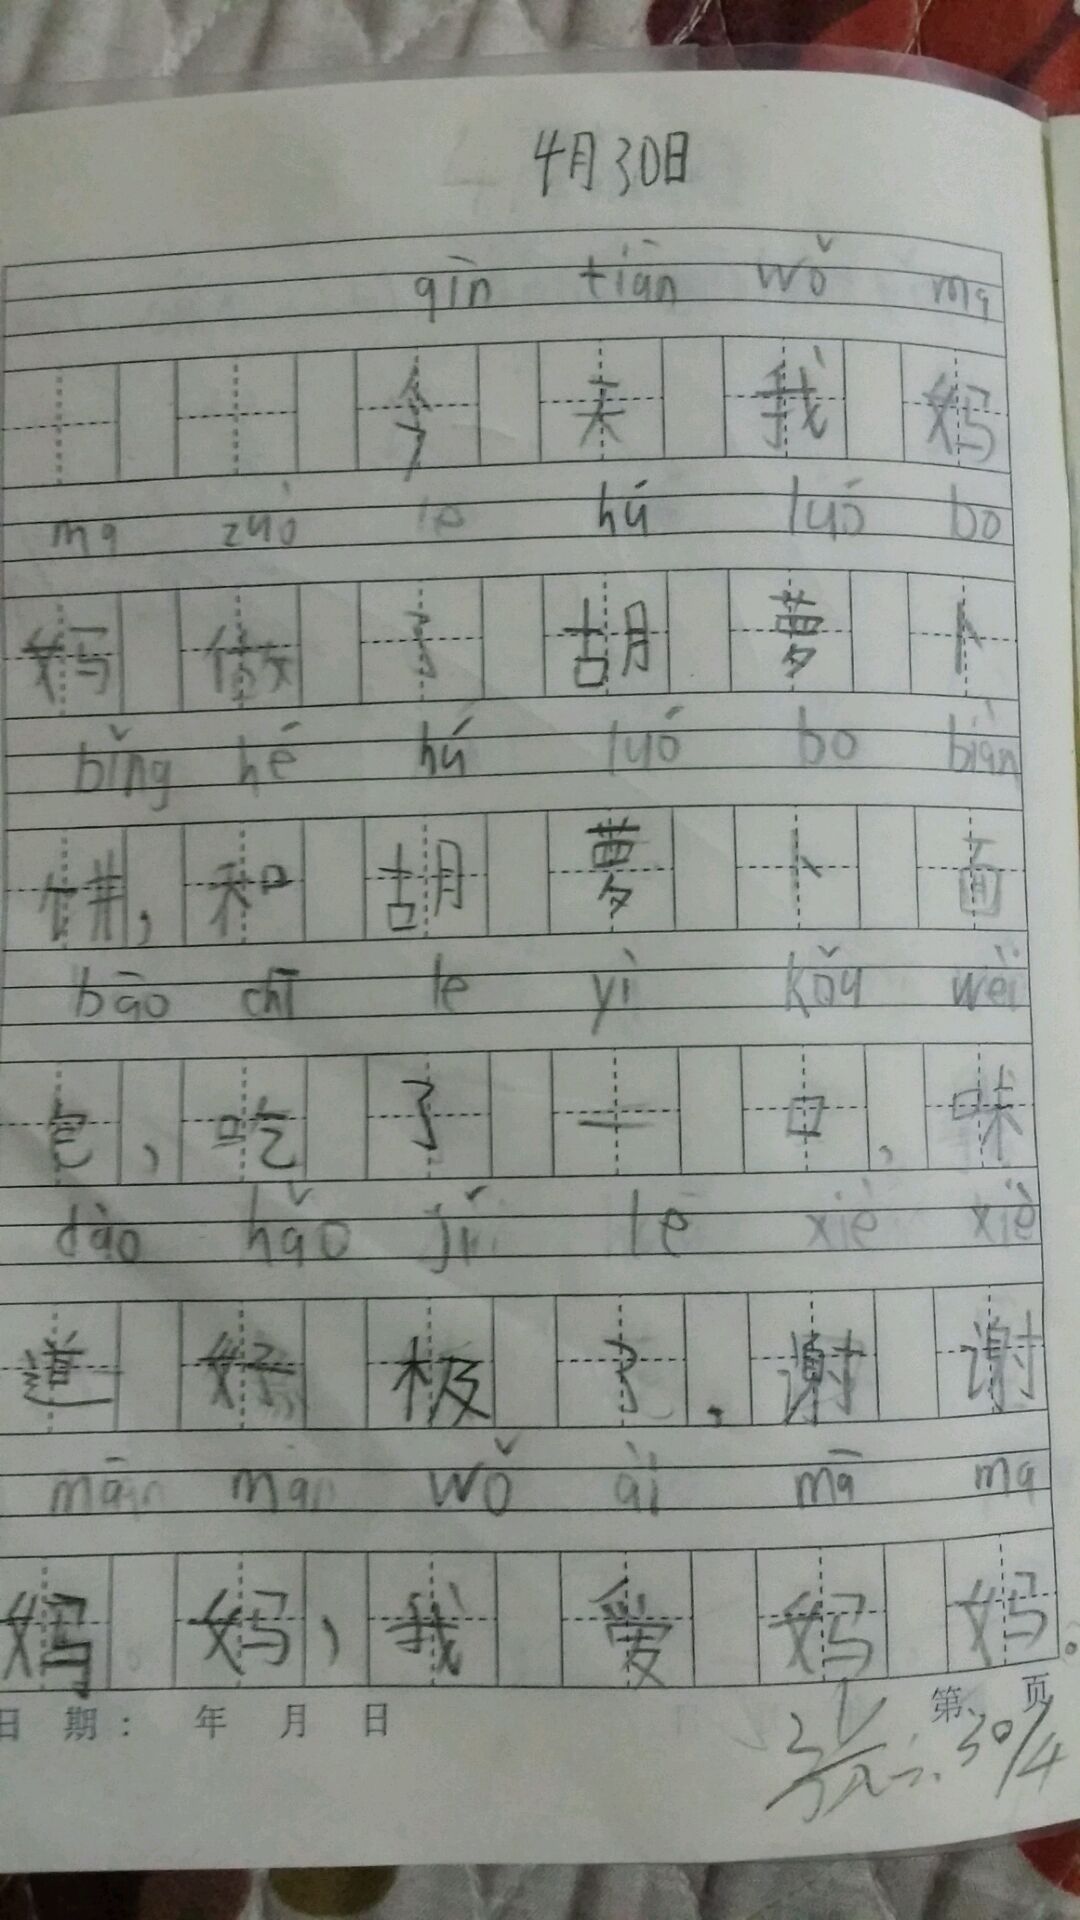 4月30日
qīn tiān wǒ ma
今天我妈
ma zuò le hú luó bo
妈做了胡萝卜
bǐng hé hú luó bo biàn
饼，和胡萝卜面
bāo chī le yì kǒu wèi
包，吃了一口，味
dào hǎo jí le xiè xiè
道好极了，谢谢
mān man wǒ ài mā ma
妈妈，我爱妈妈。
日 期： 年 月 日
第 页
30/4